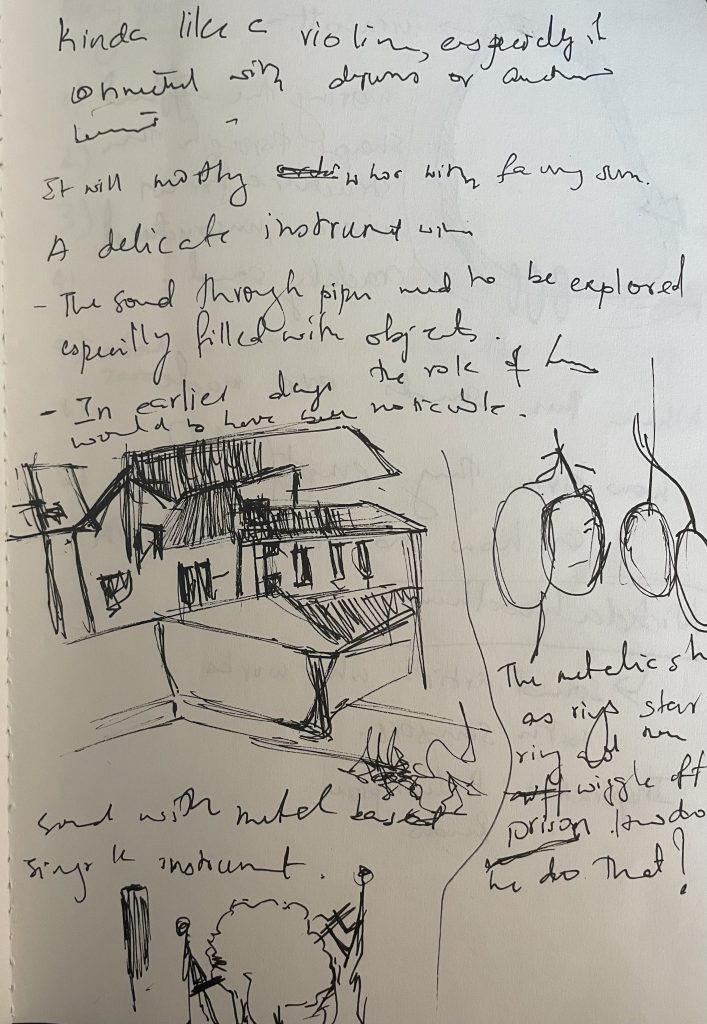 Kinda like a violin, especially if
connected with drums or
It will mostly with facing sun.
A delicate instrument with
- The sound through pipes need to be explored
especially filled with objects.
- In earlier days the role of
would to have been noticable.
The metelic sh
as rings star
ring and
wiggle off
prison. How do
he do that?
Sound with metal based
single instrument.